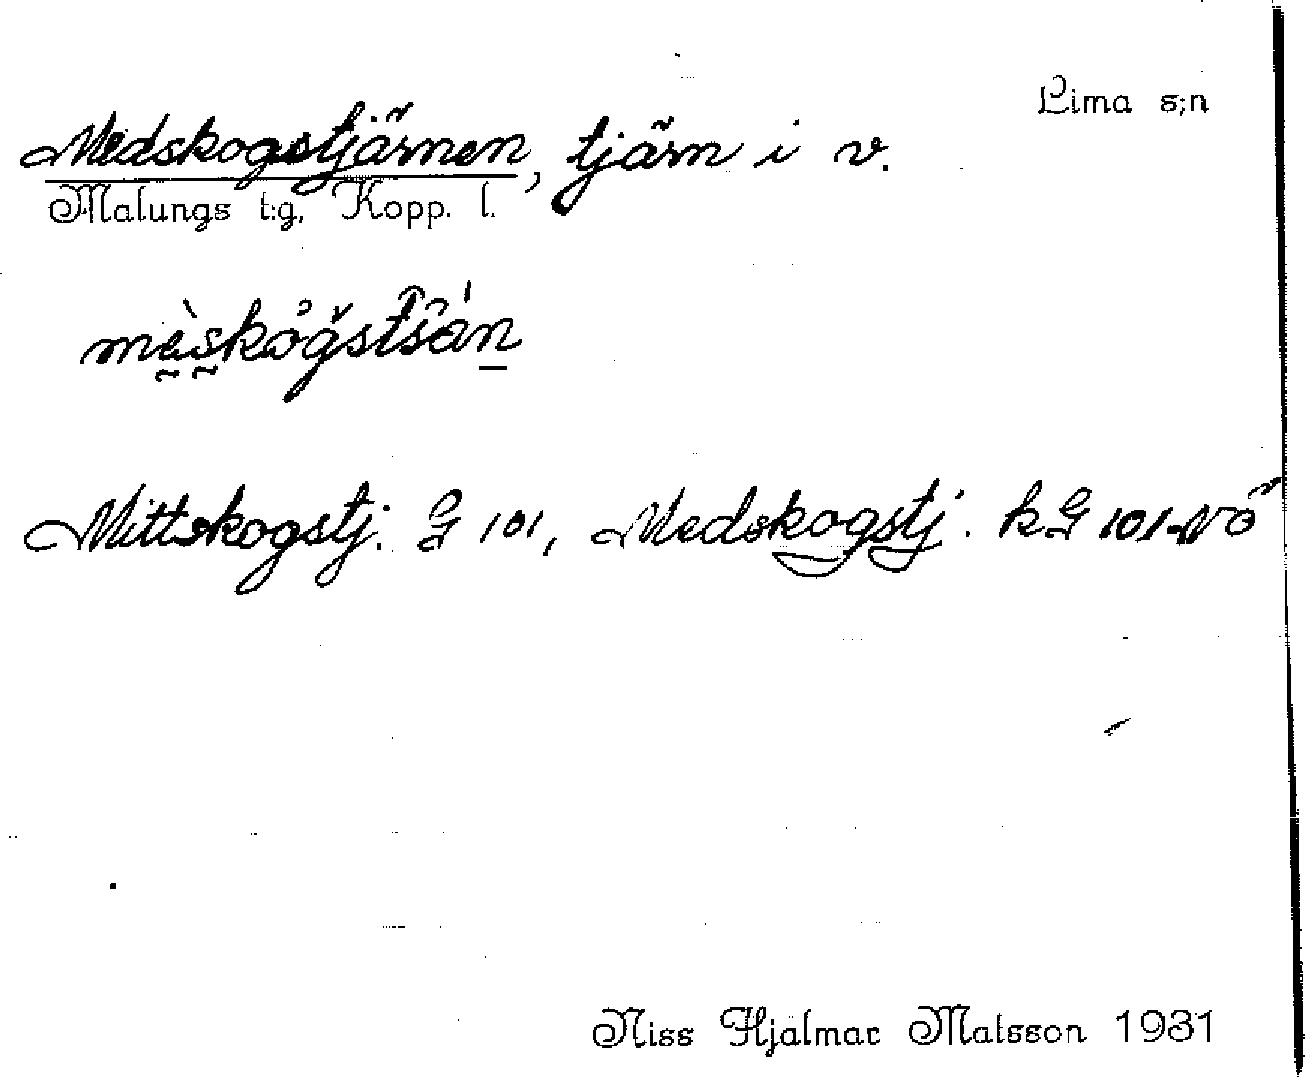 Lima s:n
Medskogstjärnen, tjärn i v.
Malungs t:g, Kopp. l.
Mittskogstj. G 101, Medskogstj. kG 101 NÖ
Niss Hjalmar Matsson 1931